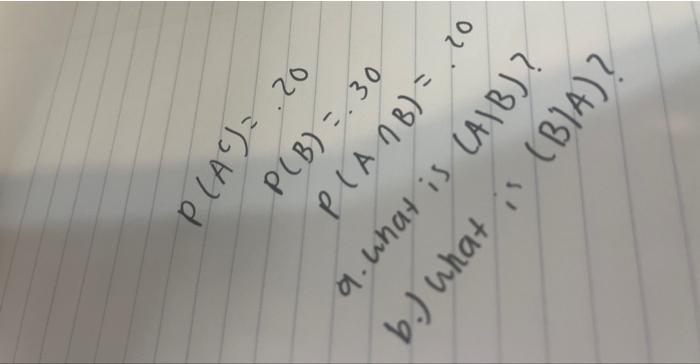 P(Aᶜ) = .20
P(B) = .30
P(A ∩ B) = .20
a. what is (A|B)?
b.) what is (B|A)?